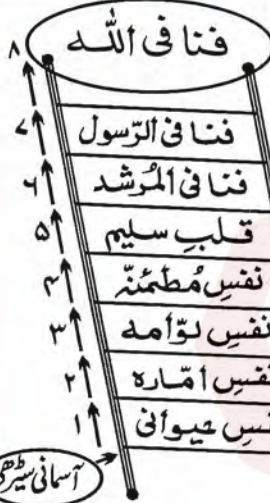 ۸ فنا فی اللہ
۷ فنا فی الرّسول
۶ فنا فی المُرشد
۵ قلبِ سلیم
۴ نفسِ مُطمئنّہ
۳ نفسِ لوّامه
۲ نفسِ امّاره
۱ نفسِ حیوانی
آسمانی سیڑھی